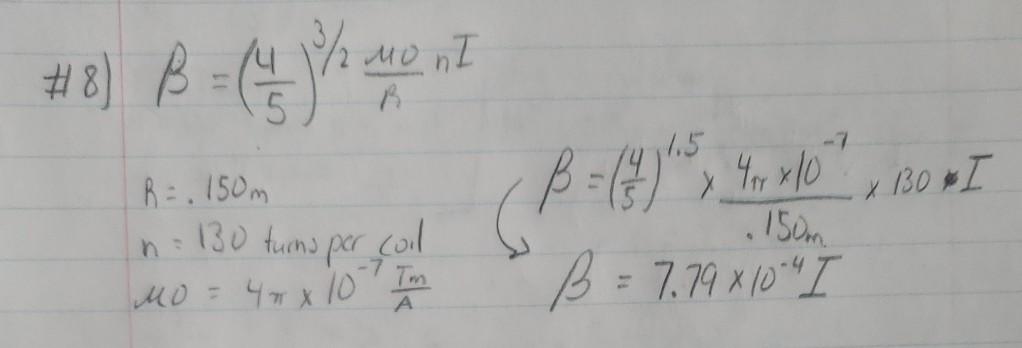 #8) β = (4/5)^3/2 μ0/R nI
R = .150m
n = 130 turns per coil
μ0 = 4π x 10^-7 Tm/A
β = (4/5)^1.5 x 4π x 10^-7/.150m x 130 • I
β = 7.79 x 10^-4 I